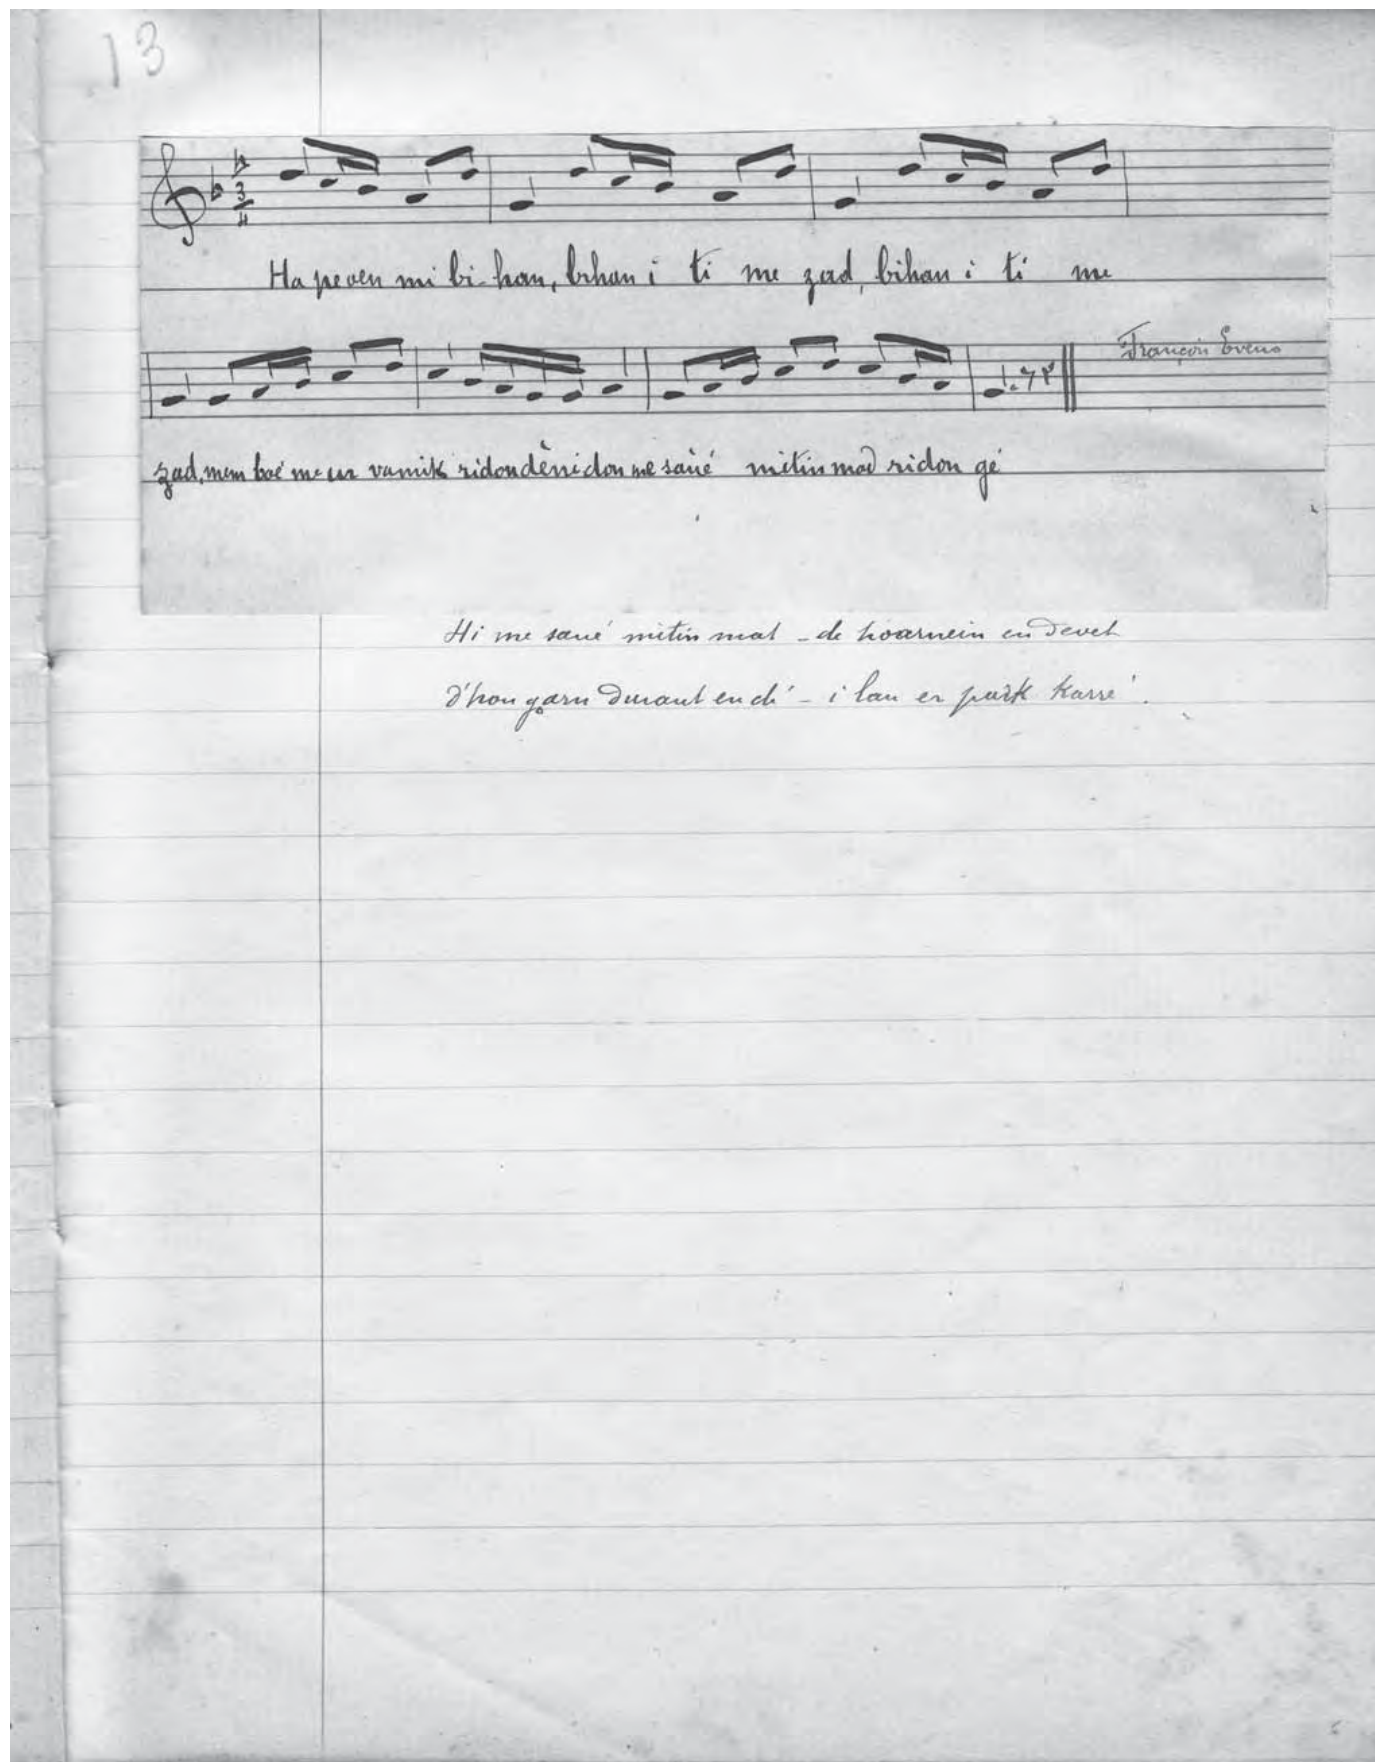 13
3/4
Ha pe oen mi bi-han, bihan i ti me zad, bihan i ti me
François Eveno
zad, mem boé me ur vamik ridondènidon me saùé mitin mad ridon gé
Hi me saué mitin mat - de hoarnein en devet
d'hou garn durant en dé - i lan er park karré.